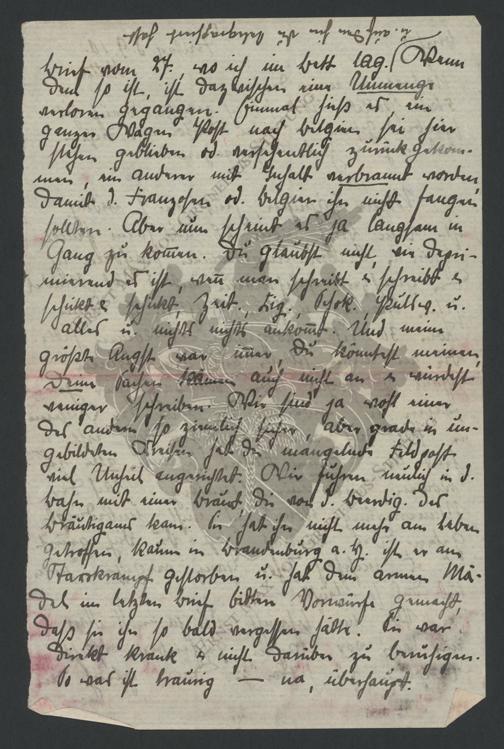 u. auf den ich Dir telegraphiert habe
Brief vom 27, wo ich im Bett lag.) Wenn
dem so ist, ist dazwischen eine Unmenge
verloren gegangen. Einmal hieß es, ein
ganzer Wagen Post nach Belgien sei hier
stehen geblieben od. versehentlich zurückgekom-
men, ein anderer mit Inhalt verbrannt worden,
damit d. Franzosen od. Belgier ihn nicht fangen
sollten. Aber nun scheint es ja langsam in
Gang zu kom̄en. Du glaubst nicht, wie depri-
mierend es ist, wen̄ man schreibt & schreibt &
schickt & schickt, Zeit., Zig., Schok., Pulsw. u.
alles u. nichts nichts ankom̄t. Und meine
größte Angst war im̄er, Du könntest meinen,
Deine Sachen kämen auch nicht an & würdest
weniger schreiben. Wir sind ja wohl einer
des andern so ziemlich sicher, aber grade in un-
gebildeten Kreisen hat die mangelnde Feldpost
viel Unheil angerichtet. Wir fuhren neulich in d.
Bahn mit einer Braut, die von d. Beerdig. des
Bräutigams kam. Sie hat ihn nicht mehr am Leben
getroffen, kaum in Brandenburg a. H. ist er am
Starrkrampf gestorben u. hat dem armen Mä-
del im letzten Brief bittere Vorwürfe gemacht,
daß sie ihn so bald vergessen hätte. Sie war
direkt krank & nicht darüber zu beruhigen.
So was ist traurig — na, überhaupt.